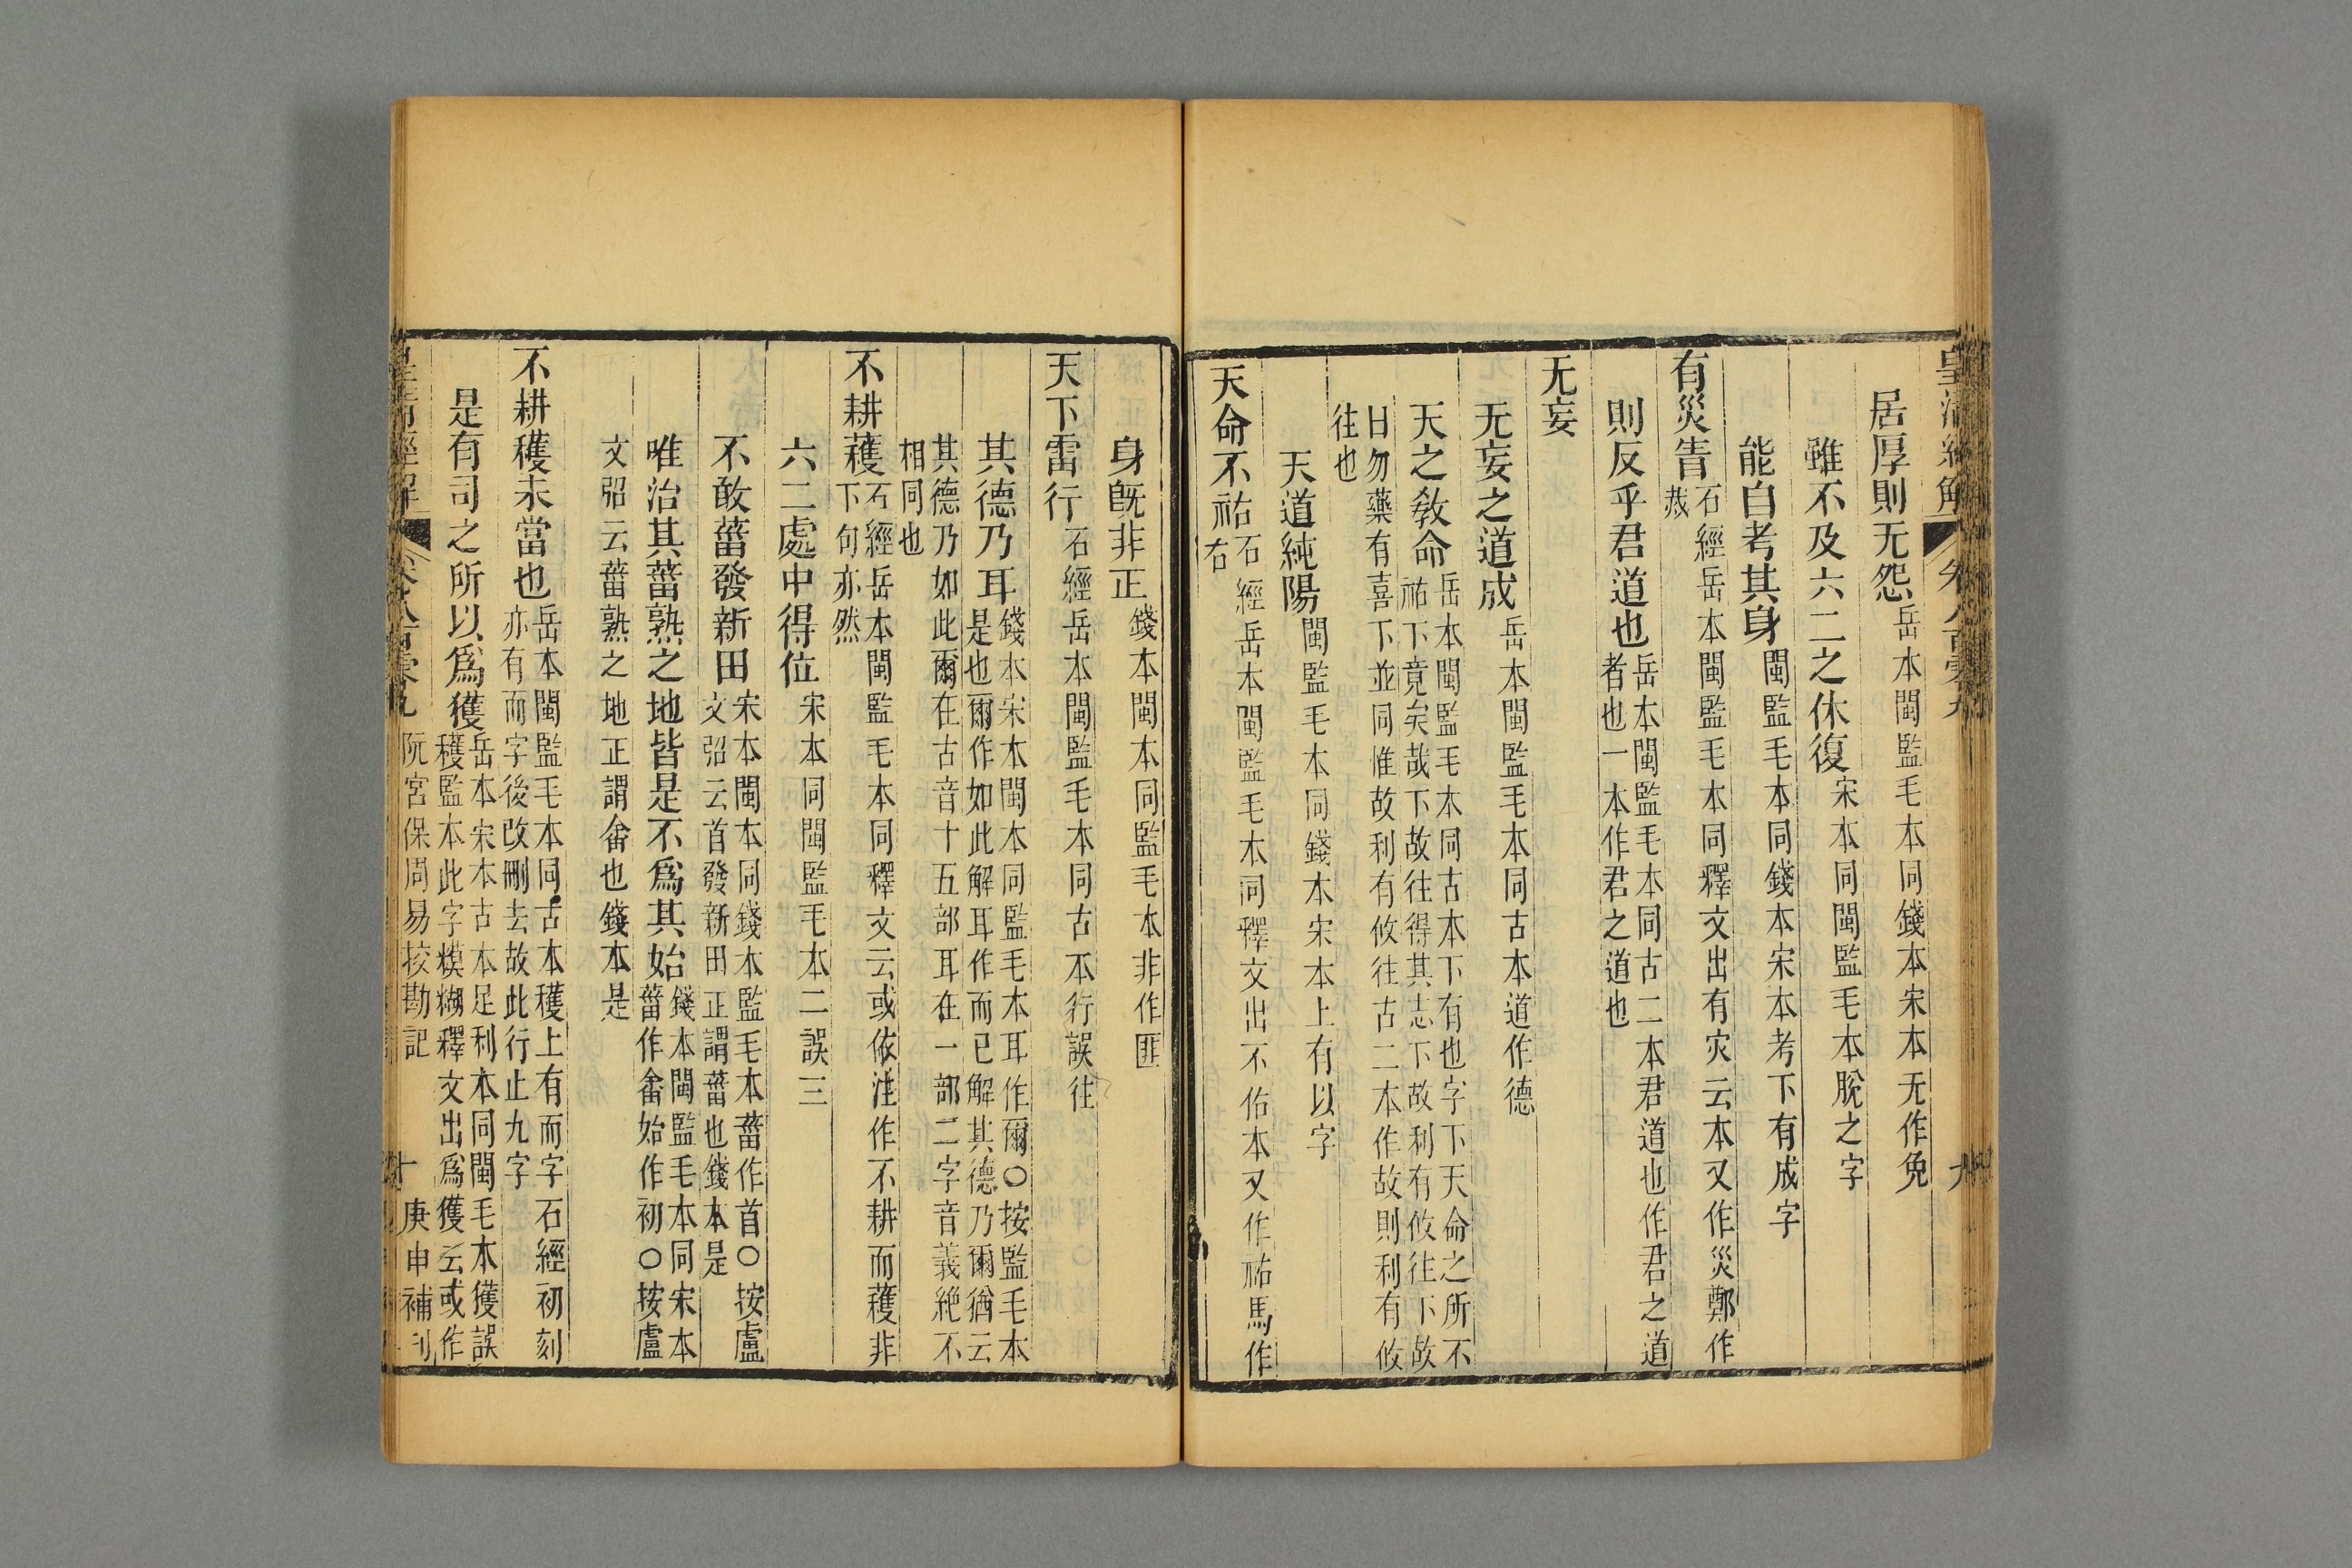 皇清經解 卷八百零九 九
居厚則无怨岳本閩監毛本同錢本宋本无作免
雖不及六二之休復宋本同閩監毛本脫之字
能自考其身閩監毛本同錢本宋本考下有成字
有災眚石經岳本閩監毛本同釋文出有灾云本又作災鄭作烖
則反乎君道也岳本閩監毛本同古二本君道也作君之道者也一本作君之道也
无妄
无妄之道成岳本閩監毛本同古本道作德
天之敎命岳本閩監毛本同古本下有也字下天命之所不祐下竟矣哉下故往得其志下故利有攸往下故
日勿藥有喜下並同惟故利有攸往古二本作故則利有攸往也
天道純陽閩監毛本同錢本宋本上有以字
天命不祐石經岳本閩監毛本同釋文出不佑本又作祐馬作右
身旣非正錢本閩本同監毛本非作匪
天下雷行石經岳本閩監毛本同古本行誤往
其德乃耳錢本宋本閩本同監毛本耳作爾○按監毛本是也爾作如此解耳作而已解其德乃爾猶云
其德乃如此爾在古音十五部耳在一部二字音義絶不相同也
不耕穫石經岳本閩監毛本同釋文云或依注作不耕而穫非下句亦然
六二處中得位宋本同閩監毛本二誤三
不敢菑發新田宋本閩本同錢本監毛本菑作首○按盧文弨云首發新田正謂菑也錢本是
唯治其菑熟之地皆是不爲其始錢本閩監毛本同宋本菑作畬始作初○按盧
文弨云菑熟之地正謂畬也錢本是
不耕穫未當也岳本閩監毛本同古本穫上有而字石經初刻亦有而字後改刪去故此行止九字
是有司之所以爲獲岳本宋本古本足利本同閩毛本獲誤穫監本此字糢糊釋文出爲獲云或作
皇清經解 卷八百零九 阮宮保周易挍勘記 十 庚申補刊